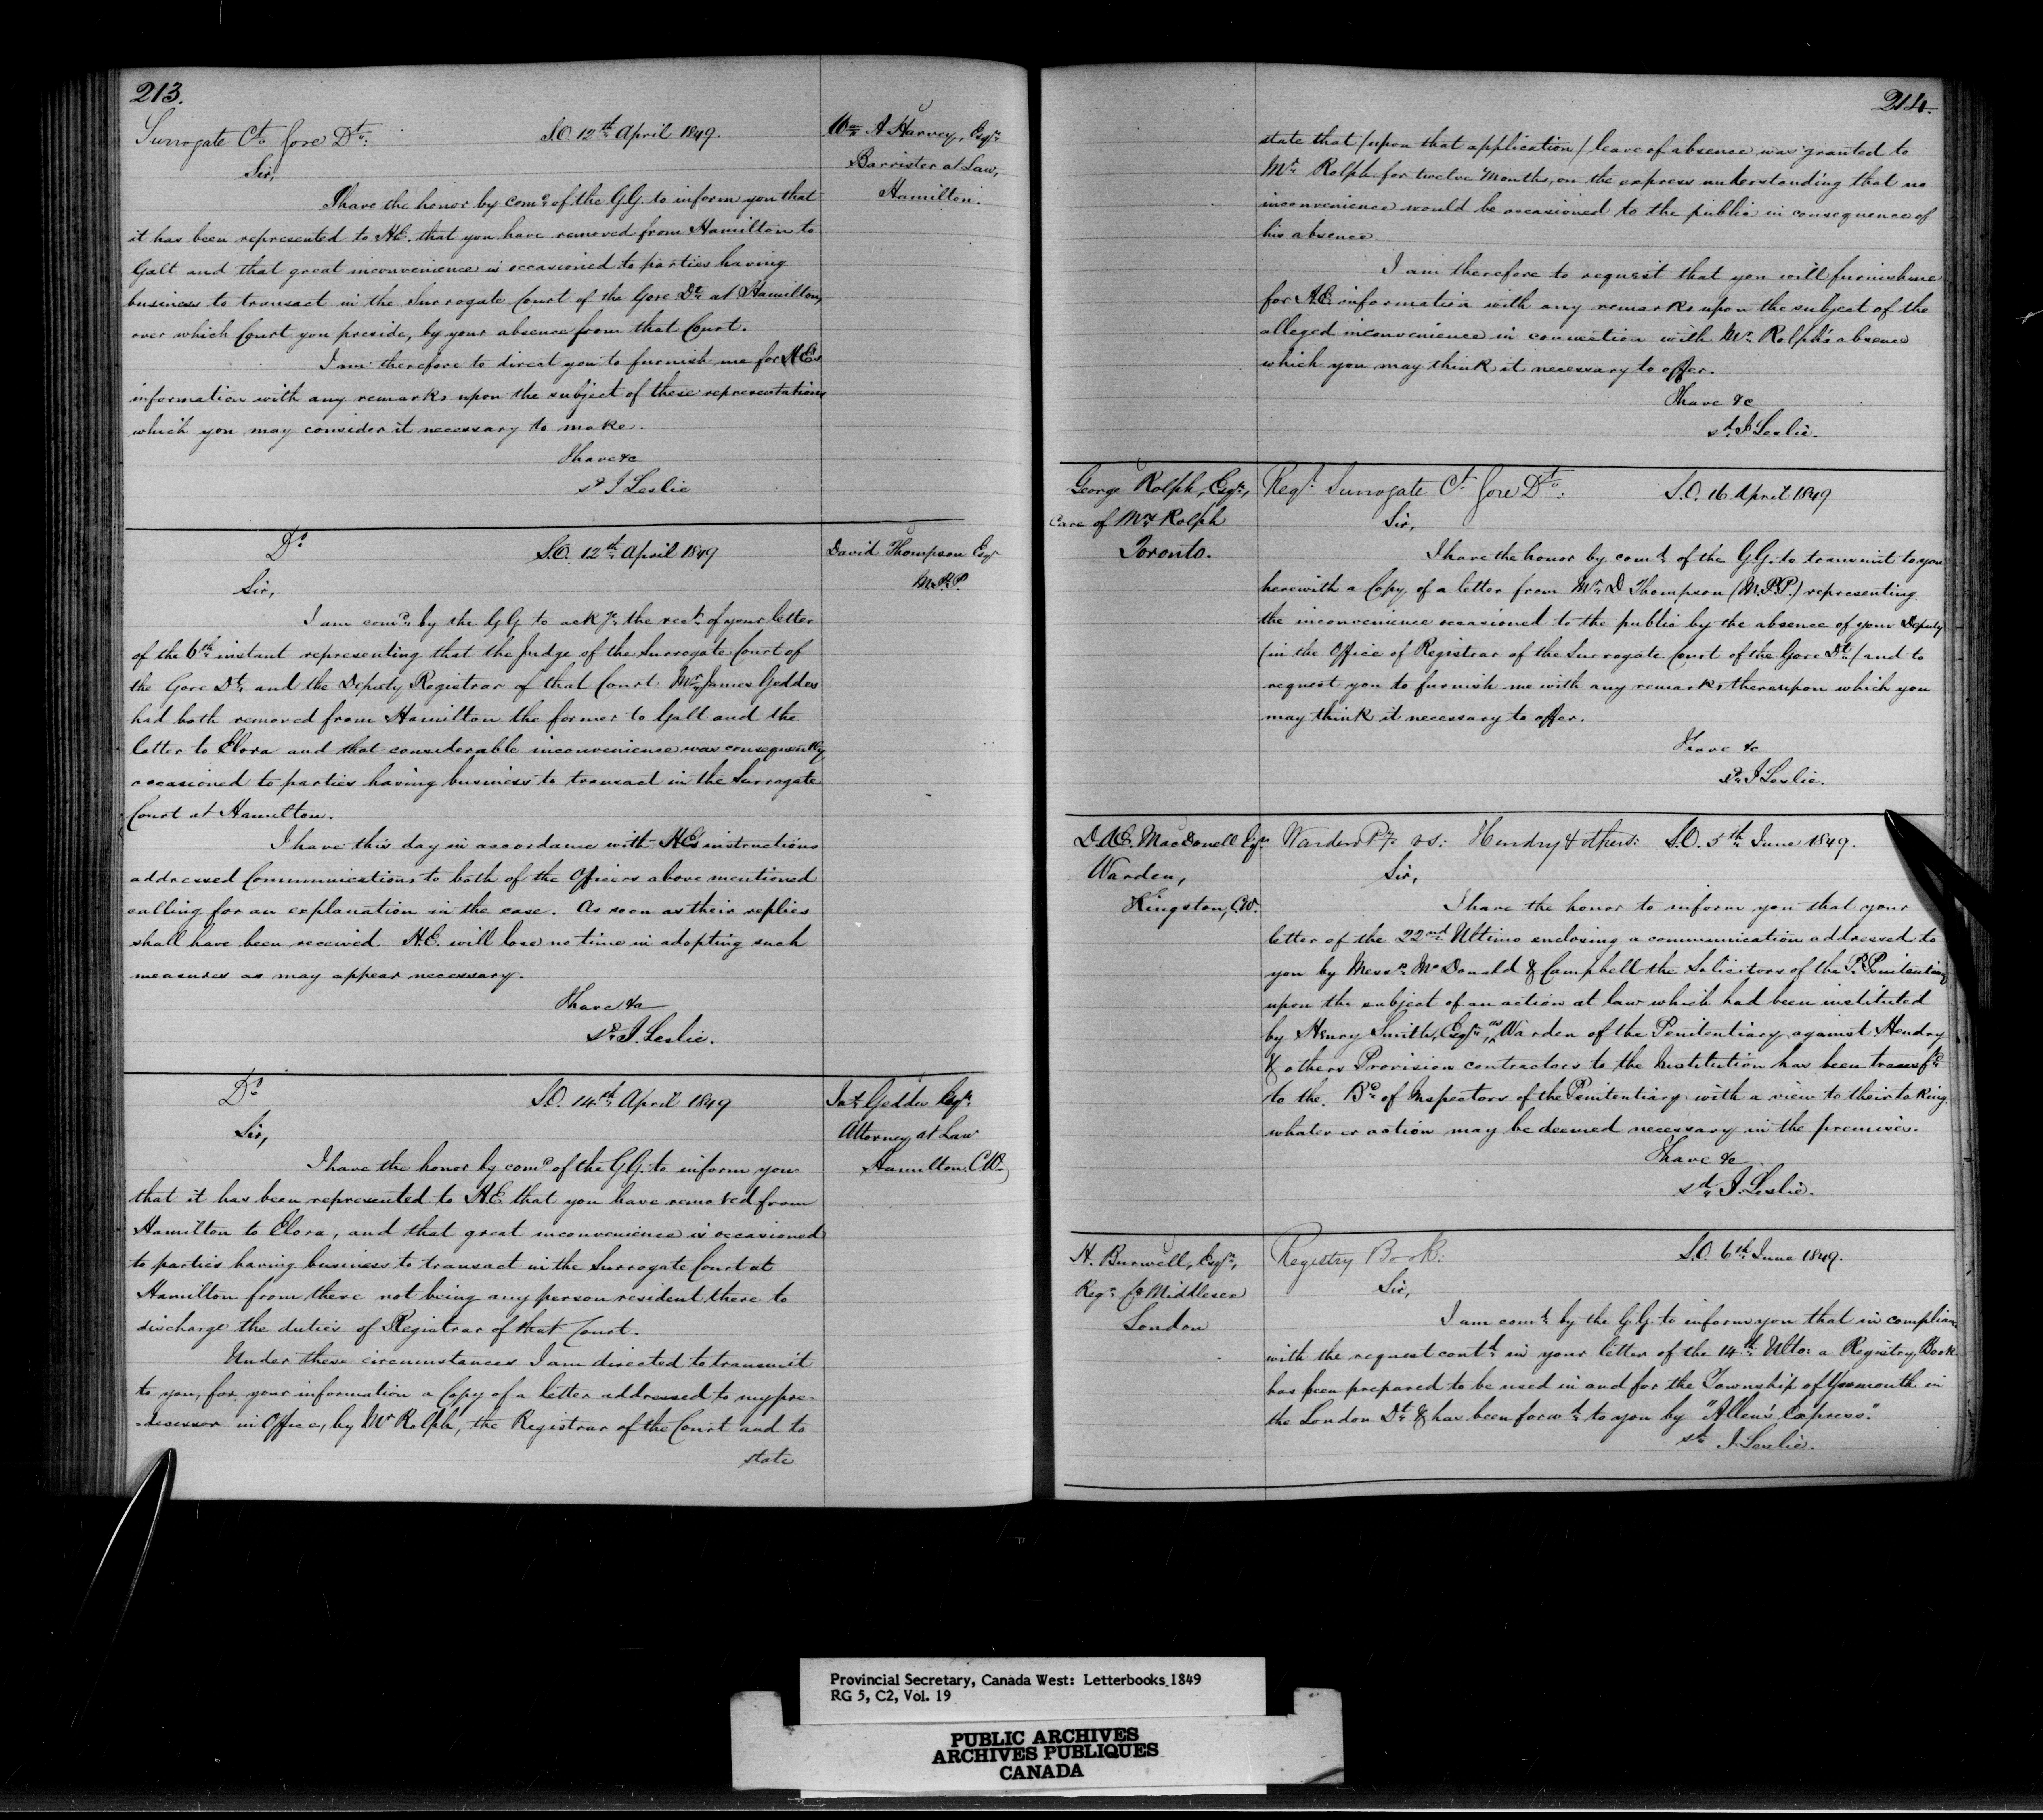 213.
Surrogate Ct. Gore Dt:
S.O. 12th April 1849.
Wm A Harvey, Esqr
Barrister at Law,
Hamilton.
Sir,
I have the honor by comd of the G.G. to inform you that
it has been represented to H.E. that you have removed from Hamilton to
Galt and that great inconvenience is occasioned to parties having
business to transact in the Surrogate Court of the Gore Dt. at Hamilton,
over which Court you preside, by your absence from that Court.
I am therefore to direct you to furnish me for H.E's
information with any remarks upon the subject of these representations
which you may consider it necessary to make.
I have &c
sd J Leslie
Do
S.O. 12th April 1849
David Thompson Esqr
M.P.P.
Sir,
I am comd by the G G to ackge the rect of your letter
of the 6th instant representing that the Judge of the Surrogate Court of
the Gore Dt, and the Deputy Registrar of that Court Mr James Geddes
had both removed from Hamilton the former to Galt and the
latter to Elora and that considerable inconvenience was consequently
occasioned to parties having business to transact in the Surrogate
Court at Hamilton.
I have this day in accordance with H.E's instructions
addressed Communications to both of the Officers above mentioned
calling for an explanation in the case. As soon as their replies
shall have been received H.E. will lose no time in adopting such
measures as may appear necessary.
I have &c
sd J. Leslie.
Do
S.O. 14th April 1849
Jas Geddes Esqr
Attorney at Law
Hamilton. C.W.
Sir,
I have the honor by comd of the G.G. to inform you
that it has been represented to H.E. that you have removed from
Hamilton to Elora, and that great inconvenience is occasioned
to parties having business to transact in the Surrogate Court at
Hamilton from there not being any person resident there to
discharge the duties of Registrar of that Court.
Under these circumstances I am directed to transmit
to you, for your information a Copy of a letter addressed to my pre-
-decessor in Office, by Mr Rolph, the Registrar of the Court and to
state
214.
state that (upon that application) leave of absence was granted to
Mr Rolph for twelve Months, on the express understanding that no
inconvenience would be occasioned to the public in consequence of
his absence.
I am therefore to request that you will furnish me
for H.E. information with any remarks upon the subject of the
alleged inconvenience in connection with Mr Rolph's absence
which you may think it necessary to offer.
I have &c
sd J Leslie.
George Rolph, Esqr,
Care of Mr Rolph
Toronto.
Regr Surrogate Ct Gore Dt:
S.O. 16 April 1849
Sir,
I have the honor by comd of the G.G. to transmit to you
herewith a Copy of a letter from Mr D Thompson (M.P.P.) representing
the inconvenience occasioned to the public by the absence of your Deputy
(in the Office of Registrar of the Surrogate Court of the Gore Dt) and to
request you to furnish me with any remarks thereupon which you
may think it necessary to offer.
I have &c
sd J Leslie.
D. Æ. MacDonell Esqr
Warden,
Kingston, C.W.
Warden Py vs: Hendry & others:
S.O. 5th June 1849.
Sir,
I have the honor to inform you that your
letter of the 22nd Ultimo enclosing a communication addressed to
you by Messrs McDonald & Campbell the Solicitors of the P. Penitentiary
upon the subject of an action at law which had been instituted
by Henry Smith, Esqr, as Warden of the Penitentiary against Hendry
& others Provision contractors to the Institution has been transfd
to the Bd of Inspectors of the Penitentiary with a view to their taking
whatever action may be deemed necessary in the premises.
I have &c
sd J. Leslie.
H. Burwell, Esqr,
Regr Co Middlesex
London
Registry Book:
S.O. 6th June 1849.
Sir,
I am comd by the G.G. to inform you that in compliance
with the request contd in your letter of the 14th Ulto: a Registry Book
has been prepared to be used in and for the Township of Yarmouth in
the London Dt & has been forwd to you by "Allen's Express."
sd J Leslie.
Provincial Secretary, Canada West: Letterbooks 1849
RG 5, C2, Vol. 19
PUBLIC ARCHIVES
ARCHIVES PUBLIQUES
CANADA